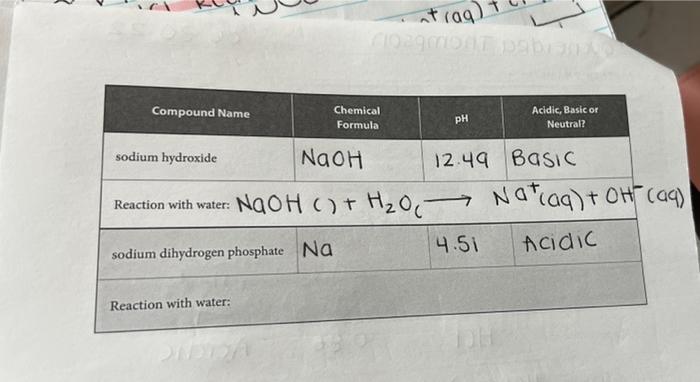 +(aq) +
Compound Name Chemical Formula pH Acidic, Basic or Neutral?
sodium hydroxide NaOH 12.49 Basic
Reaction with water: NaOH ( ) + H₂O( → Na⁺(aq) + OH⁻(aq)
sodium dihydrogen phosphate Na 4.51 Acidic
Reaction with water: